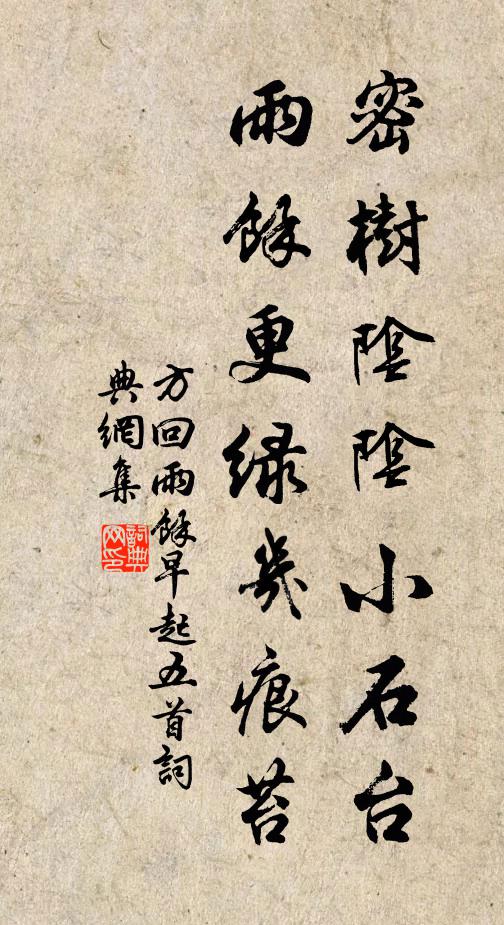 密樹陰陰小石台
雨餘更綠幾痕苔
方回雨餘早起五首詞
典網集
詞典網印